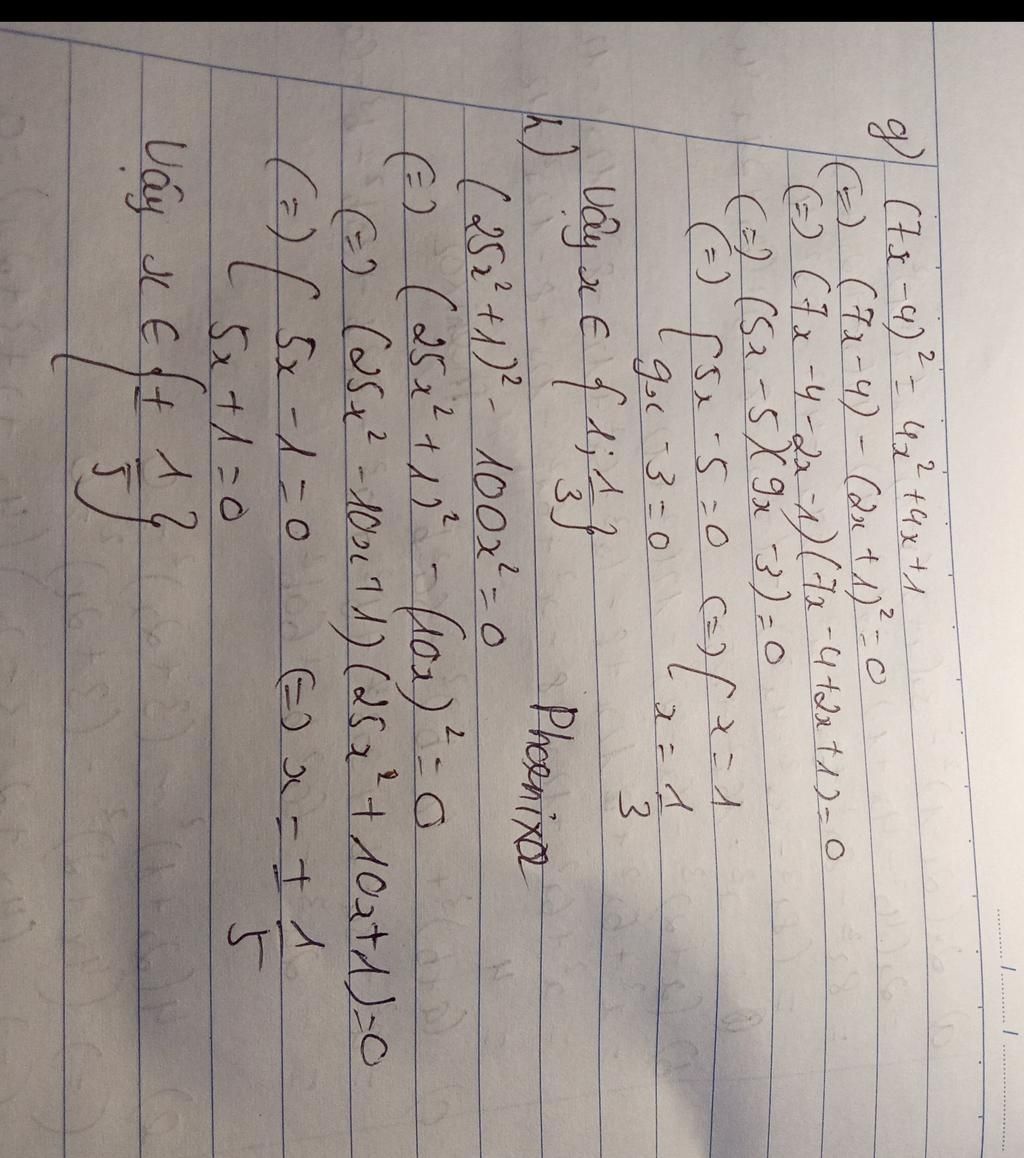 g) (7x - 4)² = 4x² + 4x + 1
(=) (7x - 4) - (2x + 1)² = 0
(=) (7x - 4 - 2x - 1)(7x - 4 + 2x + 1) = 0
(=) (5x - 5)(9x - 3) = 0
(=) [ 5x - 5 = 0 (=) [ x = 1
9x - 3 = 0 x = 1/3
Vậy x ∈ { 1; 1/3 }
h) Phoenixa
(25x² + 1)² - 100x² = 0
(=) (25x² + 1)² - (10x)² = 0
(=) (25x² - 10x + 1)(25x² + 10x + 1) = 0
(=) [ 5x - 1 = 0 (=) x = ± 1/5
5x + 1 = 0
Vậy x ∈ { ± 1/5 }